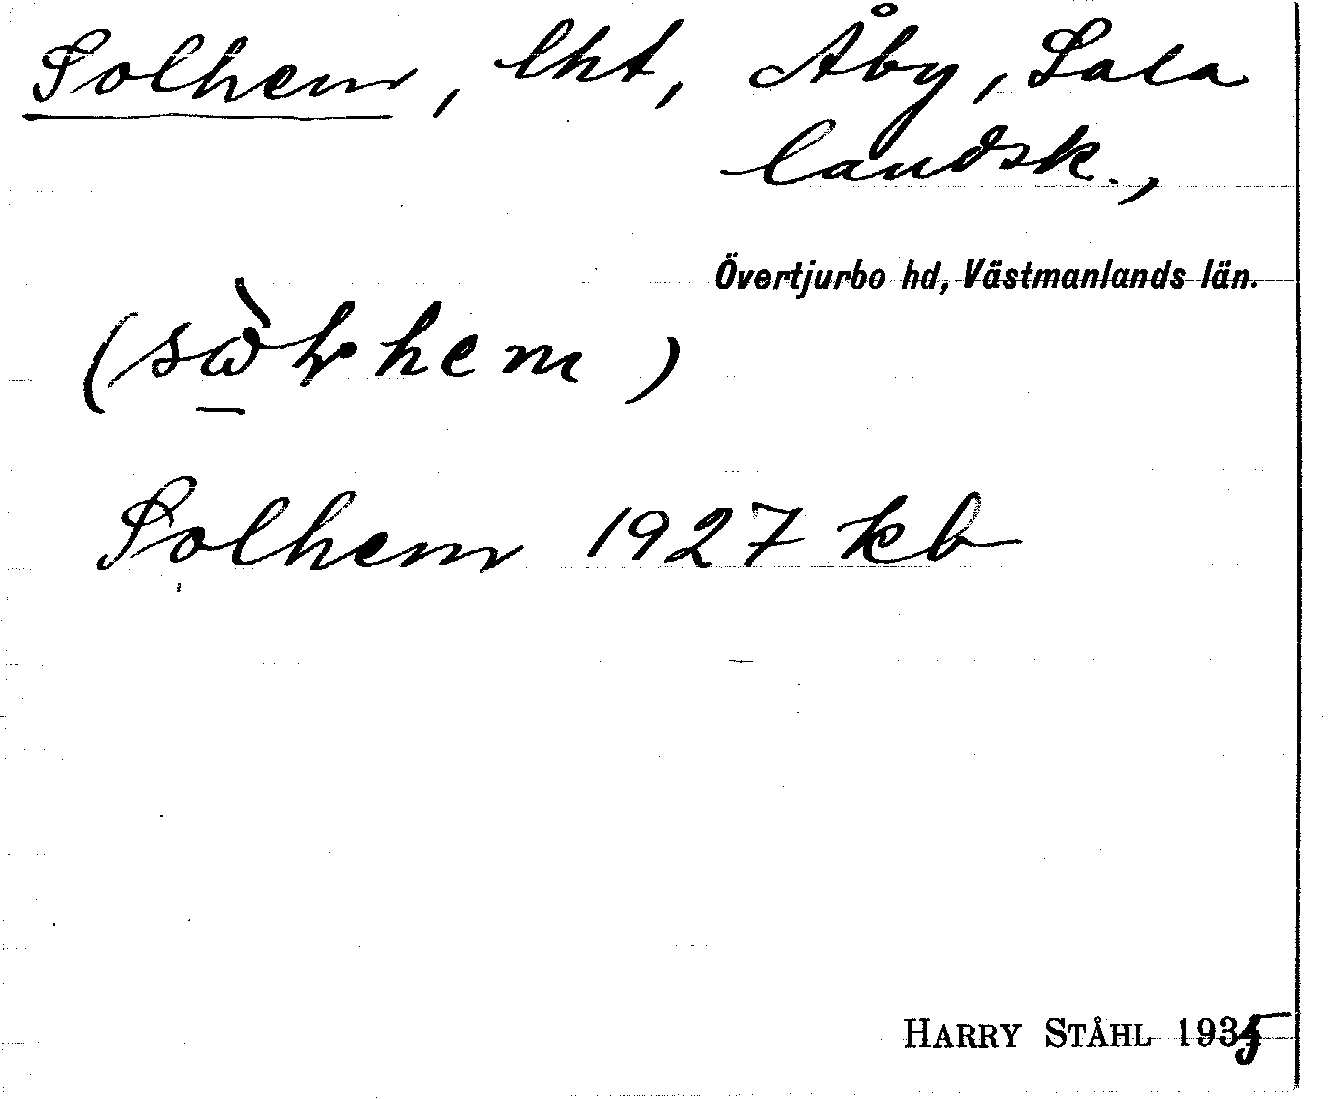 Solhem, lht, Åby, Sala
landsk.,
Övertjurbo hd, Västmanlands län.
Solhem 1927 kb
HARRY STÅHL 1935